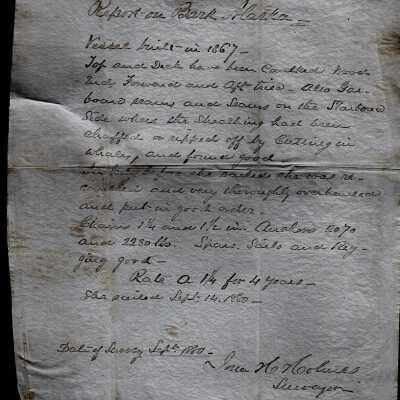 Report on Bark Alaska
Vessel built in 1867
Top and Deck have been Caulked Wood
Ends Forward and Aft tried. Also Gar-
board seams and Seams on the Starboard
Side where the Sheathing had been
chaffed or ripped off by Cutting in
whales, and found good
she sailed she was re-
and very thoroughly overhauled
and put in good order.
Chains 1¼ and 1½ in. Anchors 2070
and 2280 lbs. Spars Sails and Rig-
ging good
Rate A 1¼ for 4 years
She sailed Sept. 14. 1880
Date of Survey Sept. 1880
H Holmes
Surveyor